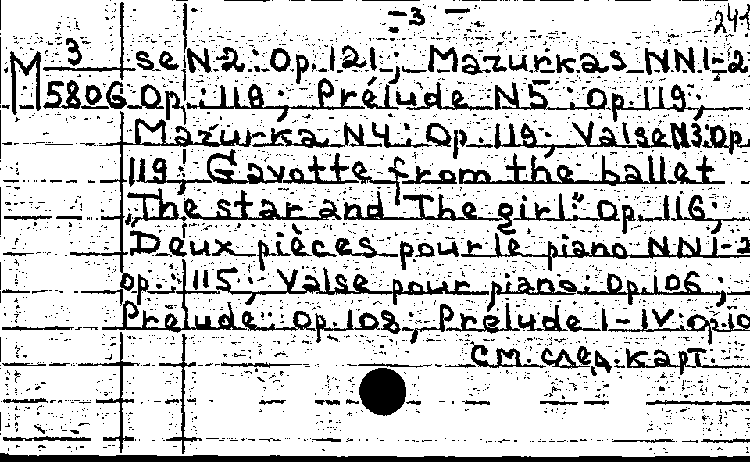 -3-
M 3 se N2: Op. 121; Mazurkas NN1-2
5806 Op.: 118; Prélude N5: Op. 119;
Mazurka N4: Op. 119; Valse N3: Op.
119; Gavotte from the ballet
"The star and The girl." Op. 116;
Deux pièces pour le piano NN1-2
op.: 115; Valse pour piano: Op. 106;
Prélude: Op. 108; Prélude I-IV: op. 10
см. след. карт.